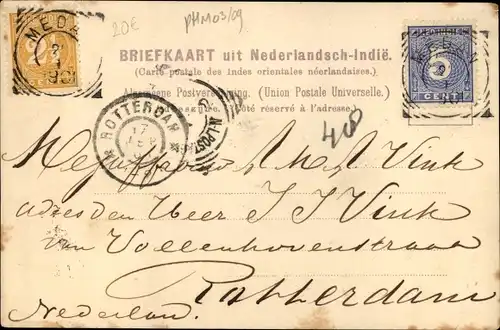 20€
PHM03/09
MEDAN
BRIEFKAART uit Nederlandsch-Indië.
(Carte postale des Indes orientales néerlandaises.)
Algemeene Postvereeniging. (Union Postale Universelle.)
Côté réservé à l'adresse.
5
CENT
ROTTERDAM
17
408
Mejuffrouw A M A Vink
adres den Heer J J Vink
van Vollenhovenstraat
Rotterdam
Nederland.